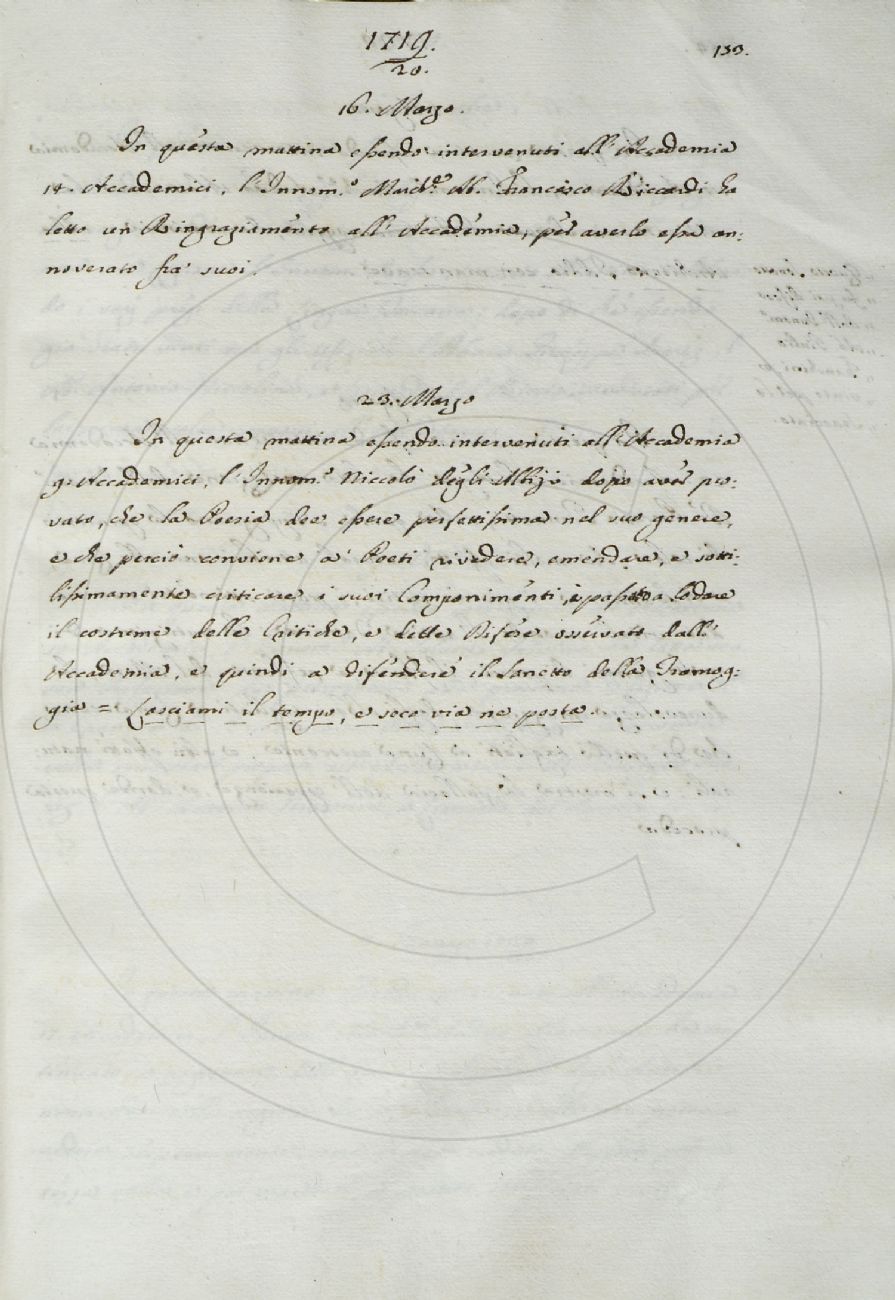 1719.
20.
133.
16. Marzo.
In questa mattina essendo intervenuti all'Accademia
14. Accademici, l'Innom.º March.e Ab. Francesco Riccardi ha
letto un Ringraziamento all'Accademia, per averlo essa an:
noverato fra' suoi.
23. Marzo
In questa mattina essendo intervenuti all'Accademia
9. Accademici, l'Innom.º Niccolò degli Albizi dopo aver pro:
vato, che la Poesia dee essere perfettissima nel suo genere,
e che perciò conviene a' Poeti rivedere, emendare, e sotti:
lissimamente criticare i suoi Componimenti, è passato a lodare
il costume delle Critiche, e delle Difese osservato dall'
Accademia, e quindi a difendere il Sonetto della Tramog:
gia = Lasciami il tempo, e seco via ne porta